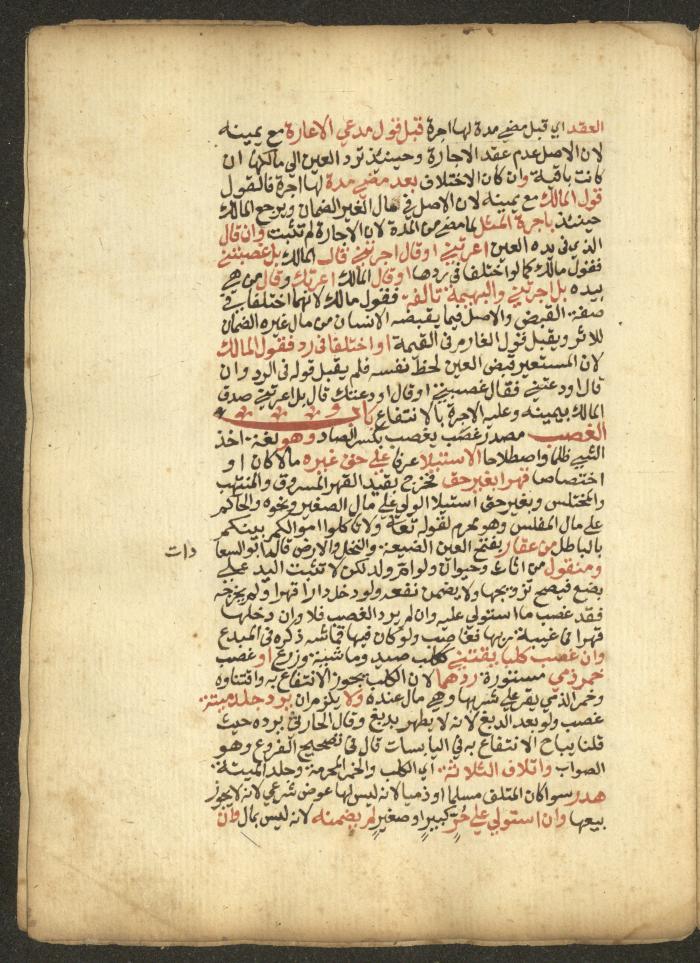 العقد اي قبل مضي مدة لها اجرة قبل قول مدعي الاعارة مع يمينه
لان الاصل عدم عقد الاجارة وحينئذ ترد العين الى مالكها ان
كانت باقية وان كان الاختلاف بعد مضي مدة لها اجرة فالقول
قول المالك مع يمينه لان الاصل في مال الغير الضمان ويرجع المالك
حينئذ باجرة المثل لما مضى من المدة لان الاجارة لم تثبت وان قال
الذي في يده العين اعرتني او قال اجرتني قال المالك بل غصبتني
فقول مالك كما لو اختلفا في ردها او قال المالك اعرتك وقال من هي
بيده بل اجرتني والبهيمة تالفة فقول مالك لانهما اختلفا في
صفة القبض والاصل فيما يقبضه الانسان من مال غيره الضمان
للاثر ويقبل قول الغارم في القيمة او اختلفا في رد فقول المالك
لان المستعير قبض العين لحظ نفسه فلم يقبل قوله في الرد وان
قال اودعتني فقال غصبتني او قال اودعتك قال بل اعرتني صدق
المالك بيمينه وعليه الاجرة بالانتفاع باب
الغصب مصدر غصب يغصب بكسر الصاد وهو لغة اخذ
الشيء ظلما واصطلاحا الاستيلا عرفا على حق غيره مالا كان او
اختصاصا قهرا بغير حق فخرج بقيد القهر المسروق والمنتهب
والمختلس وبغير حق استيلا الولي على مال الصغير ونحوه والحاكم
على مال المفلس وهو محرم لقوله تعالى ولا تاكلوا اموالكم بينكم
بالباطل من عقار بفتح العين الضيعة والنخل والارض قاله ابو السعا
دات
ومنقول من اثاث وحيوان ولو ام ولد لكن لا تثبت اليد على
بضع فيصح تزويجها ولا يضمن نفعه ولو دخل دارا قهرا ولم يخرجه
فقد غصب ما استولى عليه وان لم يرد الغصب فلا وان دخلها
قهرا في غيبة ربها فغاصب ولو كان فيها قماشه ذكره في المبدع
وان غصب كلبا يقتنى ككلب صيد وماشية وزرع او غصب
خمر ذمي مستورة ردهما لان الكلب يجوز الانتفاع به واقتناوه
وخمر الذمي يقر على شربها وهي مال عنده ولا يلزم ان يرد جلد ميتة
غصب ولو بعد الدبغ لانه لا يطهر بدبغ وقال الحارثي يرده حيث
قلنا يباح الانتفاع به في اليابسات قال في تصحيح الفروع وهو
الصواب واتلاف الثلاثة اي الكلب والخمر المحرمة وجلد الميتة
هدر سوا كان المتلف مسلما او ذميا لانه ليس لها عوض شرعي لانه لا يجوز
بيعها وان استولى على حر كبير او صغير لم يضمنه لانه ليس بمال وان